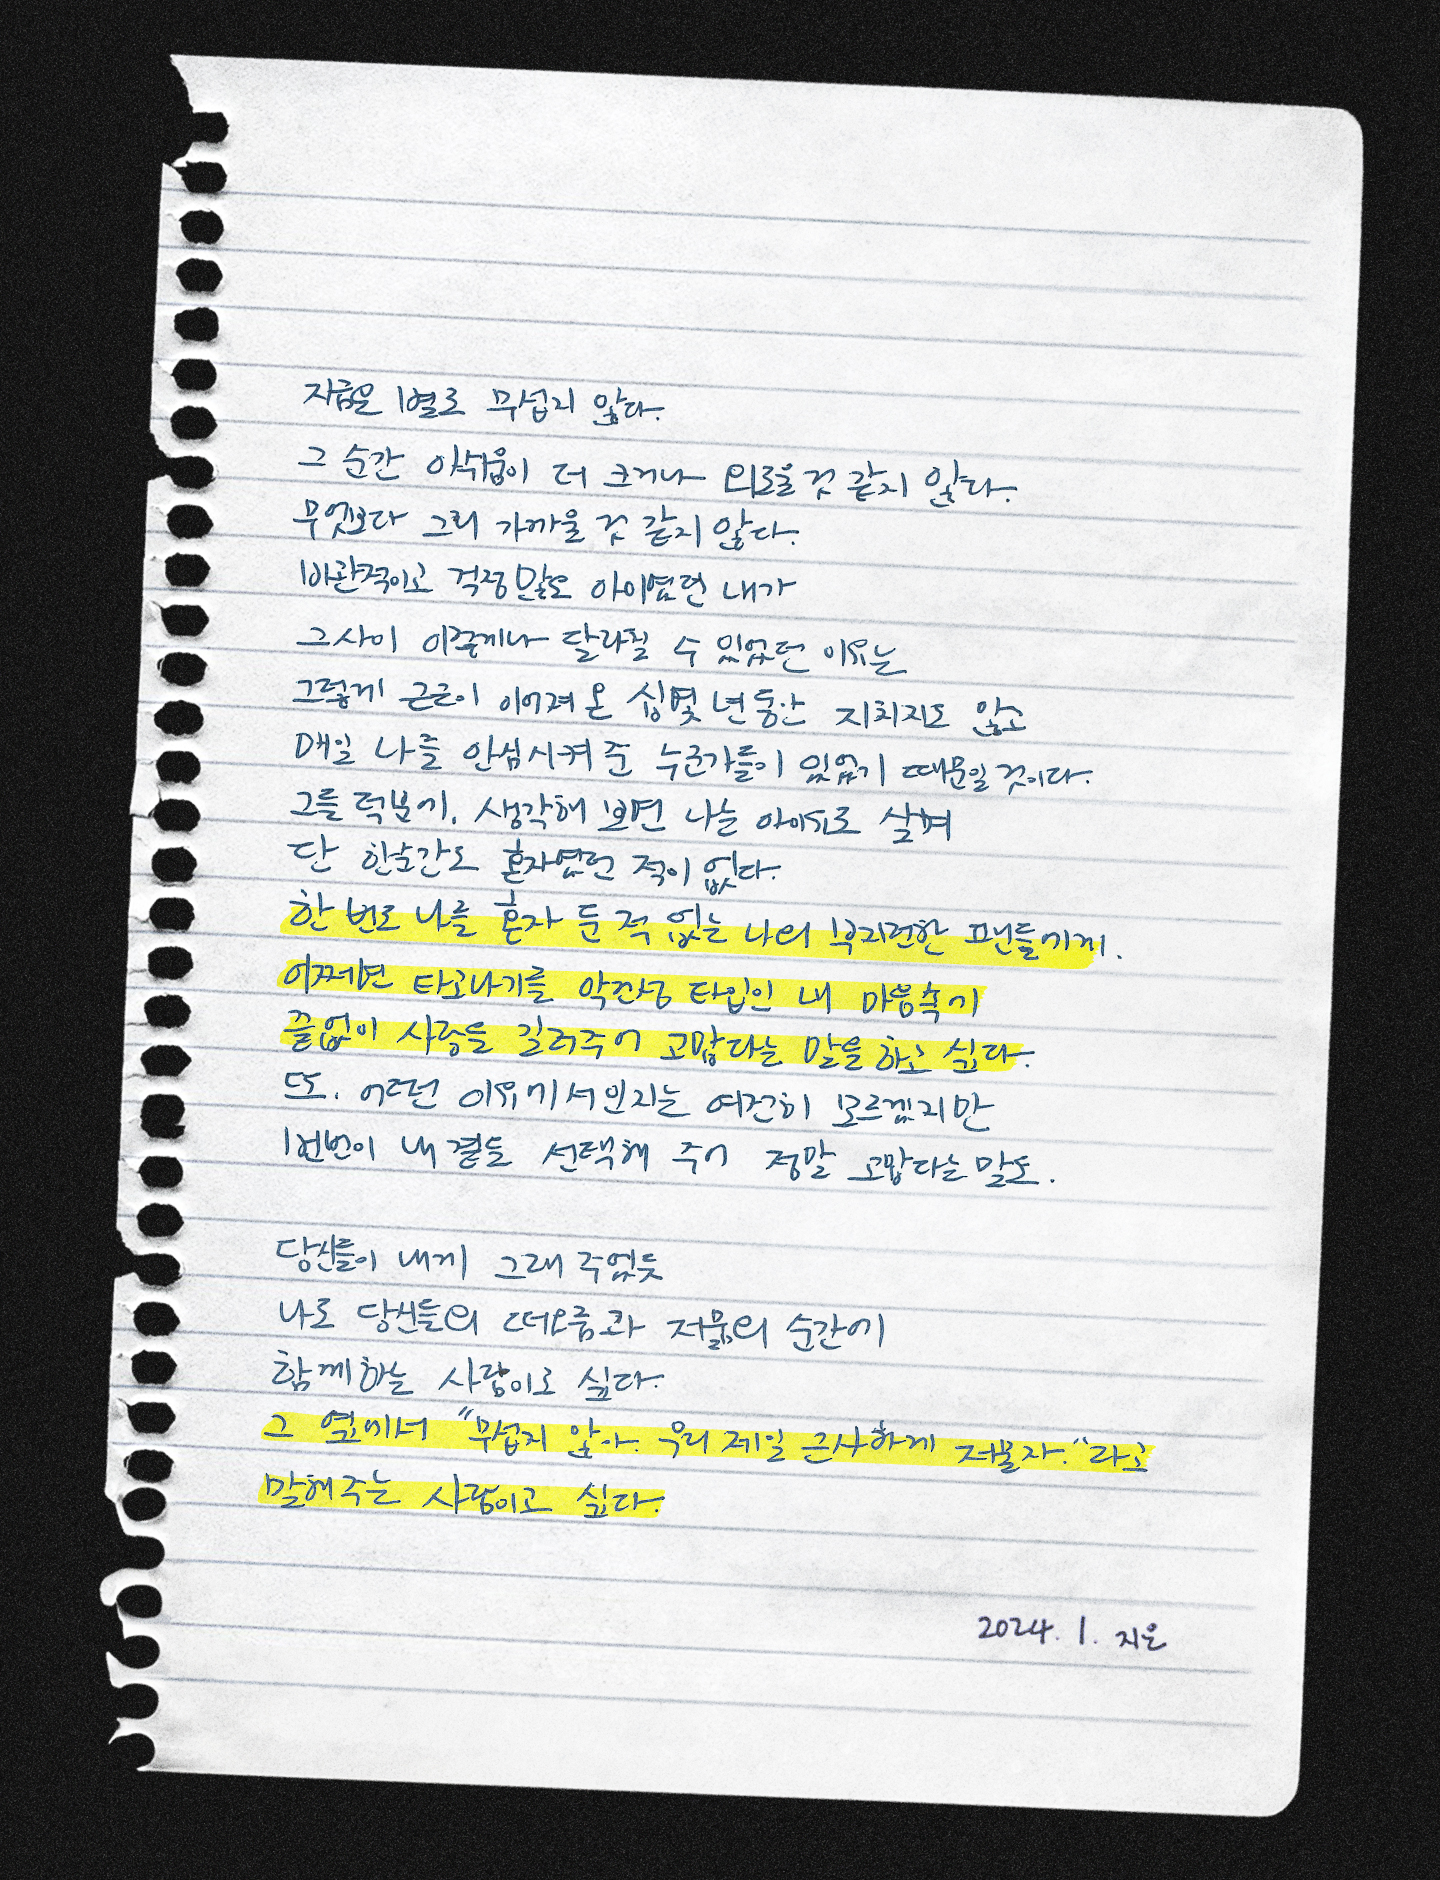 지금은 별로 무섭지 않다.
그 순간 아쉬움이 더 크거나 외로울 것 같지 않다.
무엇보다 그리 가까울 것 같지 않다.
비관적이고 걱정많은 아이였던 내가
그사이 이렇게나 달라질 수 있었던 이유는
그렇게 근근이 이어져 온 십몇 년 동안 지치지도 않고
매일 나를 안심시켜 준 누군가들이 있었기 때문일 것이다.
그들 덕분에, 생각해 보면 나는 아이유로 살며
단 한순간도 혼자였던 적이 없다.
한 번도 나를 혼자 둔 적 없는 나의 부지런한 팬들에게.
어쩌면 타고나기를 악건성 타입인 내 마음속에
끝없이 사랑을 길러주어 고맙다는 말을 하고 싶다.
또, 어떤 이유에서인지는 여전히 모르겠지만
번번이 내 곁을 선택해 주어 정말 고맙다는 말도.
당신들이 내게 그래 주었듯
나도 당신들의 떠오름과 저묾의 순간에
함께하는 사람이고 싶다.
그 옆에서 "무섭지 않아. 우리 제일 근사하게 저물자."라고
말해주는 사람이고 싶다.
2024. 1. 지은